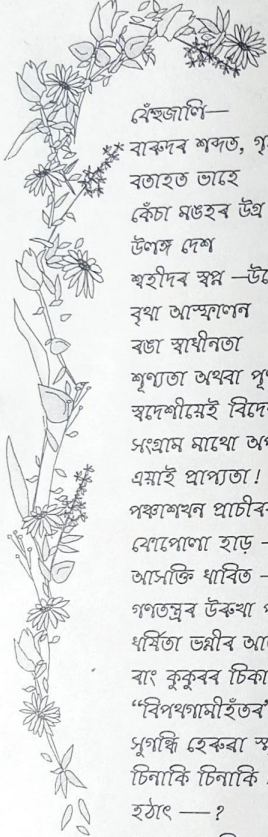 বেঁহুজালি—
বাৰুদৰ শব্দত,
বতাহত ভাহে
কেঁচা মঙহৰ উগ্ৰ
উলঙ্গ দেশ
শ্বহীদৰ স্বপ্ন —
বৃথা আস্ফালন
ৰঙা স্বাধীনতা
শূণ্যতা অথবা
স্বদেশীয়েই
সংগ্ৰাম মাথো
এয়াই প্ৰাপ্যতা !
পঞ্চাশখন
জোপোলা হাড় –
আসক্তি ধাবিত –
গণতন্ত্ৰৰ উৰুখা
ধৰ্ষিতা ভগ্নীৰ
ৰাং কুকুৰৰ
“বিপথগামীহঁতৰ”
সুগন্ধি হেৰুৱা
চিনাকি চিনাকি
হঠাৎ — ?